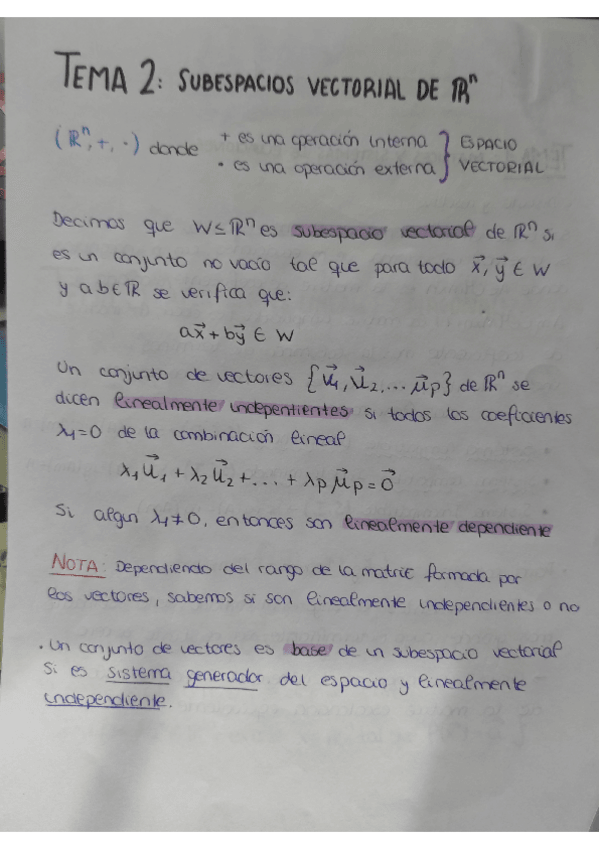 TEMA 2: SUBESPACIOS VECTORIAL DE ℝⁿ
(ℝⁿ, +, ·) donde + es una operación interna } ESPACIO
· es una operación externa } VECTORIAL
Decimos que W ≤ ℝⁿ es subespacio vectorial de ℝⁿ si
es un conjunto no vacío tal que para todo x⃗, y⃗ ∈ W
y a b ∈ ℝ se verifica que:
ax⃗ + by⃗ ∈ W
Un conjunto de vectores {u⃗₁, u⃗₂, ... u⃗p} de ℝⁿ se
dicen linealmente indepentientes si todos los coeficientes
λ₁=0 de la combinación lineal
λ₁u⃗₁ + λ₂u⃗₂ + ... + λpu⃗p = 0⃗
Si algun λ₁≠0, entonces son linealmente dependiente
NOTA: Dependiendo del rango de la matriz formada por
los vectores, sabemos si son linealmente independientes o no
· Un conjunto de vectores es base de un subespacio vectorial
si es sistema generador del espacio y linealmente
independiente.